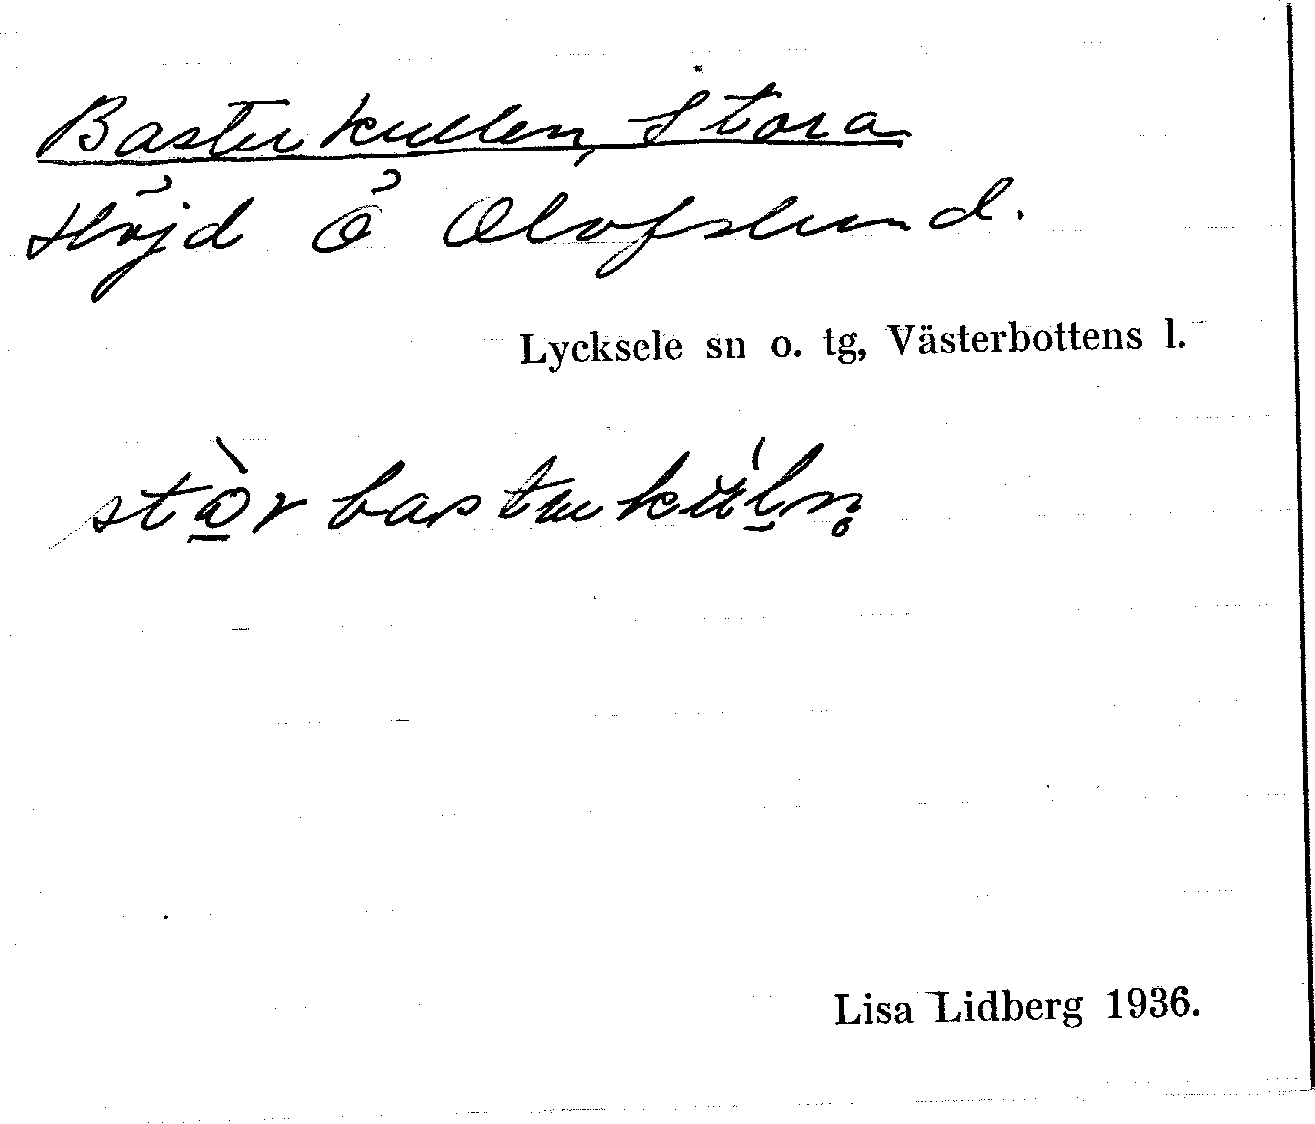 Bastukullen, Stora
Höjd Ö Olofslund.
Lycksele sn o. tg, Västerbottens l.
stò̠r bastukúl̠n̥
Lisa Lidberg 1936.